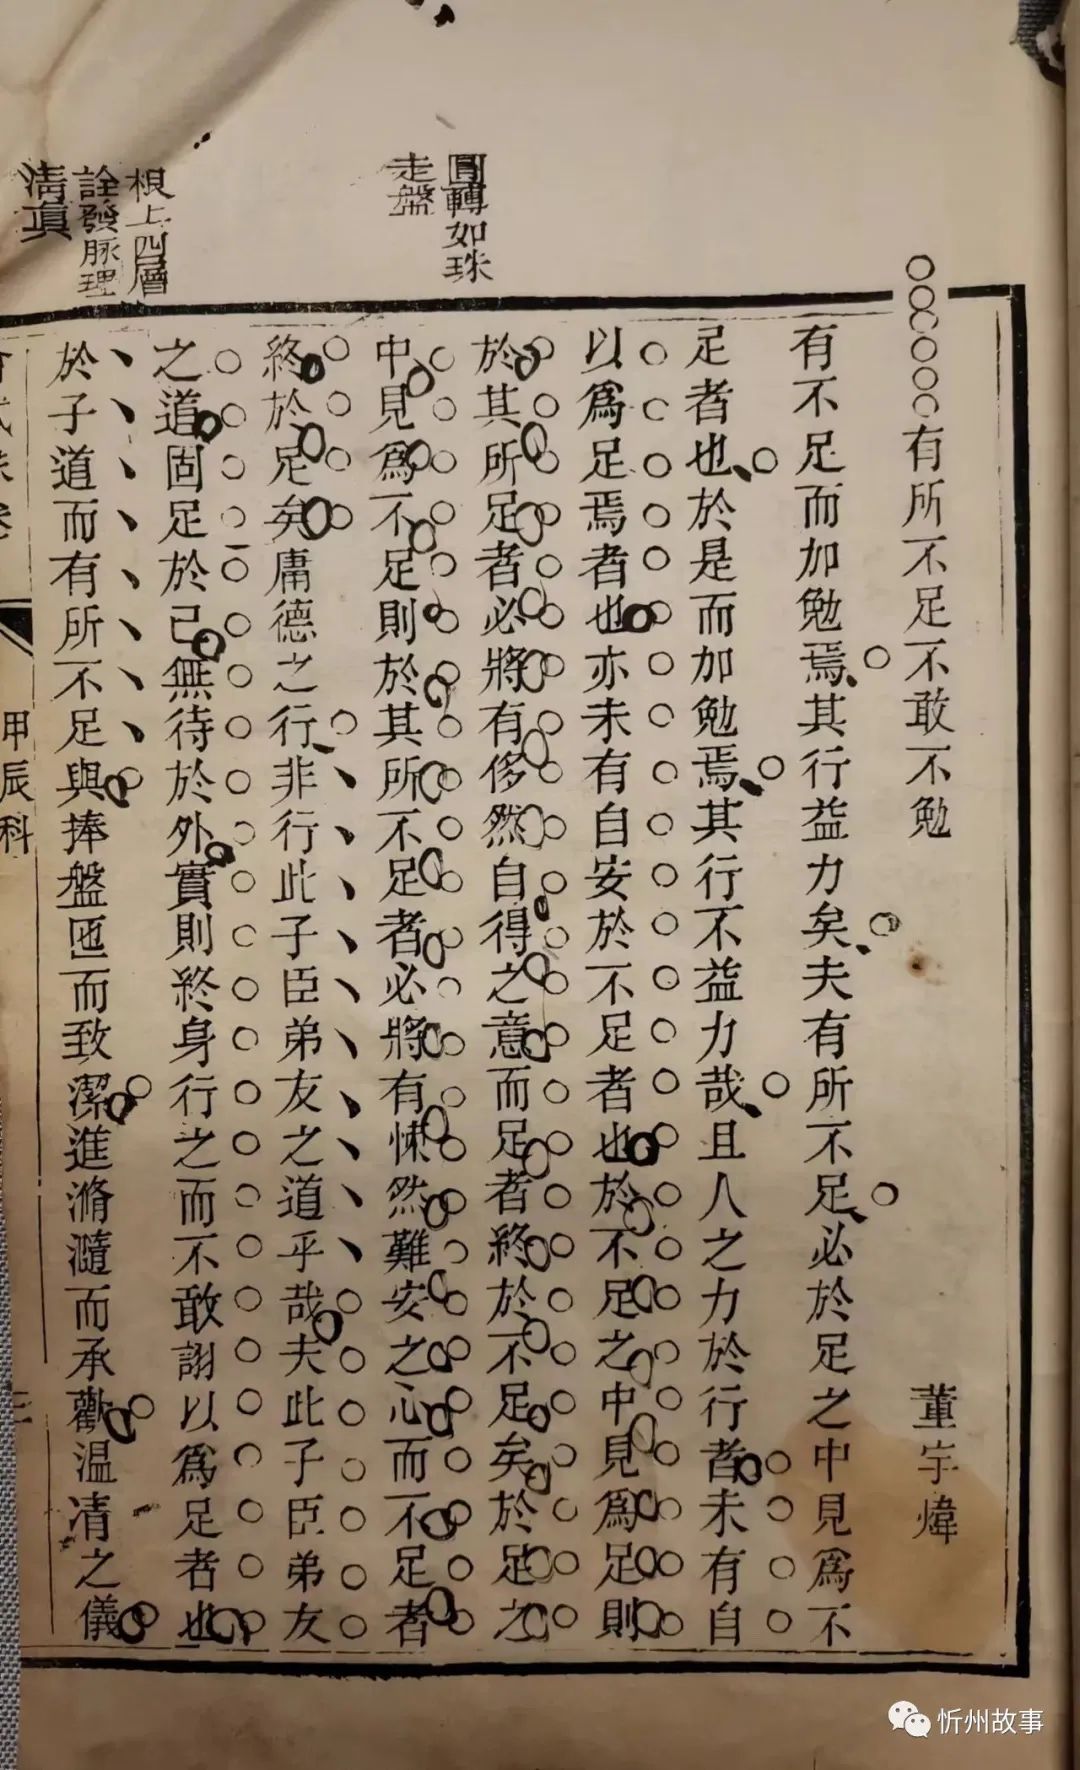 圓轉如珠
走盤
根上四層
詮發脈理
淸眞
有所不足不敢不勉
董宇煒
有不足而加勉焉其行益力矣夫有所不足必於足之中見爲不
足者也於是而加勉焉其行不益力哉且人之力於行者未有自
以爲足焉者也亦未有自安於不足者也於不足之中見爲足則
於其所足者必將有侈然自得之意而足者終於不足矣於足之
中見爲不足則於其所不足者必將有悚然難安之心而不足者
終於足矣庸德之行非行此子臣弟友之道乎哉夫此子臣弟友
之道固足於己無待於外實則終身行之而不敢謝以爲足者也
於子道而有所不足與捧盤匜而致潔進滫瀡而承歡温凊之儀
會試硃卷
甲辰科
忻州故事